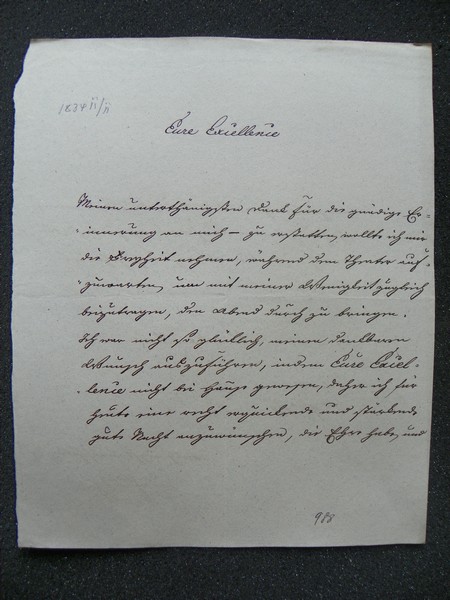 1834 II/II
Eure Excellence
Meinen unterthänigsten Dank für die gnädige Er-
innerung an mich – zu erstatten, wollte ich mir
die Freyheit nehmen, während dem Theater auf-
zuwarten, um mit meiner Wenigkeit zugleich
beizutragen, den Abend durch zu bringen.
Ich war nicht so glücklich, meinen dankbaren
Wunsch auszuführen, indem Eure Excel-
lence nicht bei Hause gewesen, daher ich für
heute eine recht erquickende und stärkende
gute Nacht anzuwünschen, die Ehre habe, und
988